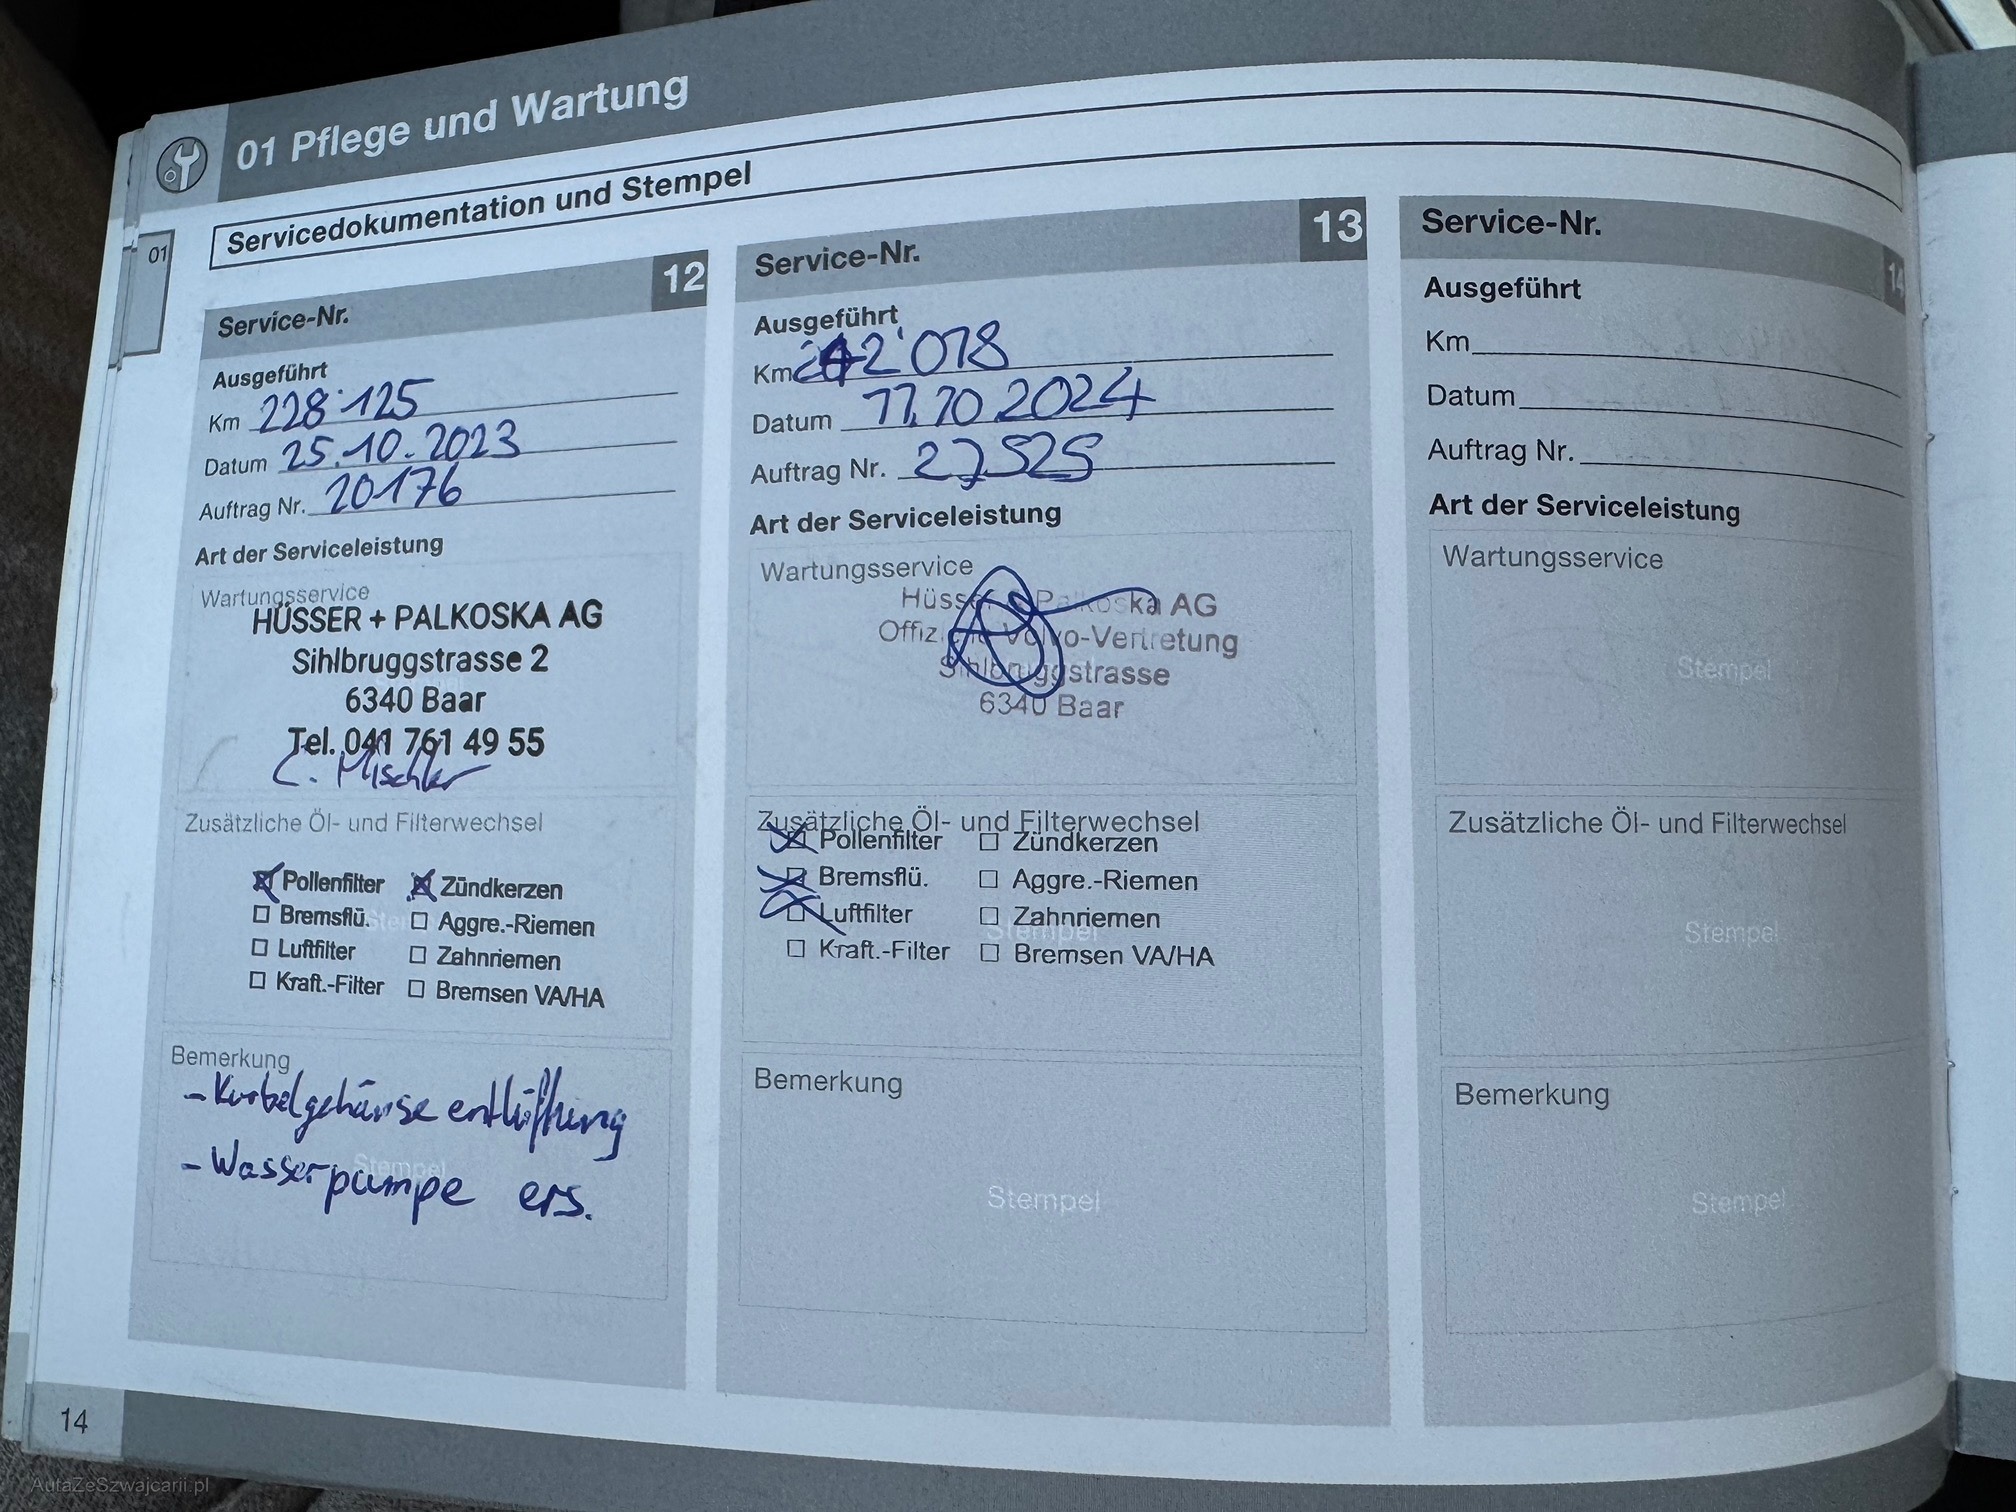 01 Pflege und Wartung
Servicedokumentation und Stempel
01
Service-Nr. 12
Ausgeführt
Km 228'125
Datum 25.10.2023
Auftrag Nr. 20176
Art der Serviceleistung
Wartungsservice
HÜSSER + PALKOSKA AG
Sihlbruggstrasse 2
6340 Baar
Tel. 041 761 49 55
Zusätzliche Öl- und Filterwechsel
Pollenfilter Zündkerzen
Bremsflü. Aggre.-Riemen
Luftfilter Zahnriemen
Kraft.-Filter Bremsen VA/HA
Bemerkung
- Kurbelgehäuse entlüftung
Stempel
- Wasserpumpe ers.
Service-Nr. 13
Ausgeführt
Km 242'018
Datum 11.10.2024
Auftrag Nr. 27525
Art der Serviceleistung
Wartungsservice
Hüsser + Palkoska AG
Offizielle Volvo-Vertretung
Sihlbruggstrasse
6340 Baar
Zusätzliche Öl- und Filterwechsel
Pollenfilter Zündkerzen
Bremsflü. Aggre.-Riemen
Luftfilter Zahnriemen
Stempel
Kraft.-Filter Bremsen VA/HA
Bemerkung
Stempel
Service-Nr. 14
Ausgeführt
Km
Datum
Auftrag Nr.
Art der Serviceleistung
Wartungsservice
Stempel
Zusätzliche Öl- und Filterwechsel
Stempel
Bemerkung
Stempel
14
AutaZeSzwajcarii.pl